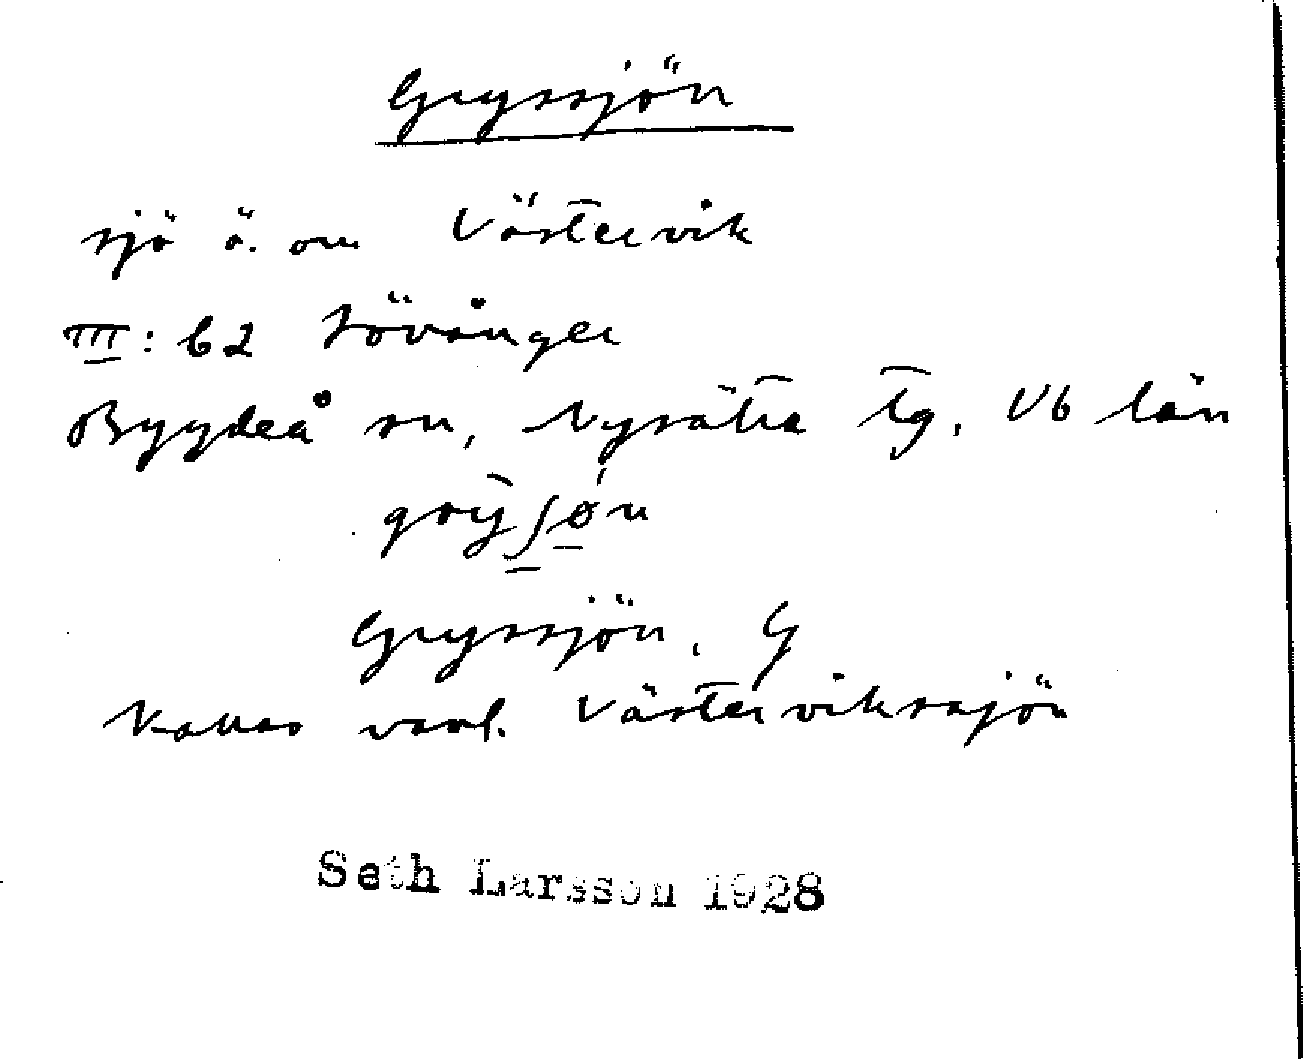 Gryssjön
sjö ö. om Västervik
III: 62 Lövånger
Bygdeå sn, Nysätra tg, Vb län
Gryssjön, G
Kallas vanl. Västerviksssjön
Seth Larsson 1928